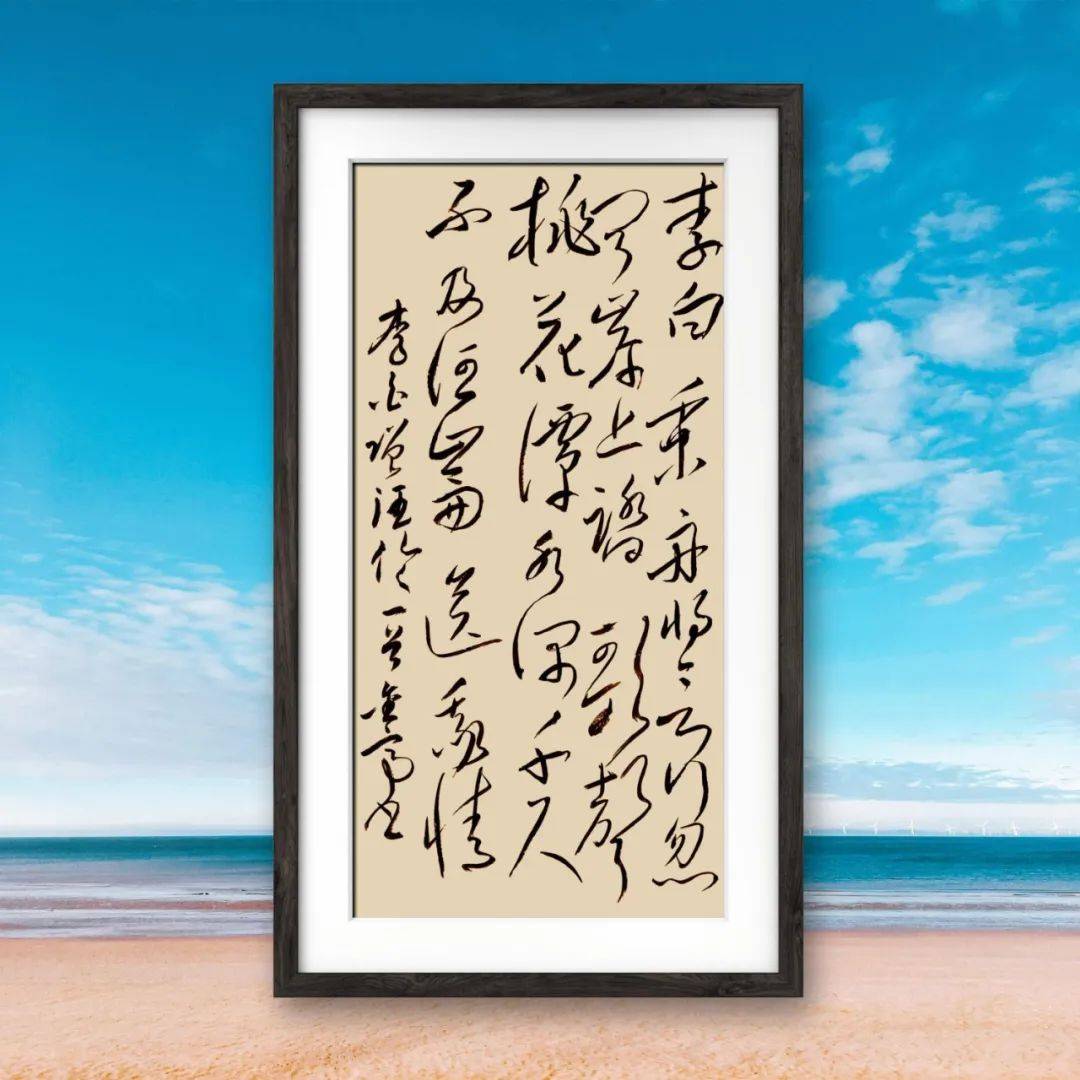 李白乘舟将欲行忽
闻岸上踏歌聲
桃花潭水深千尺
不及汪倫送我情
李白贈汪伦一首书